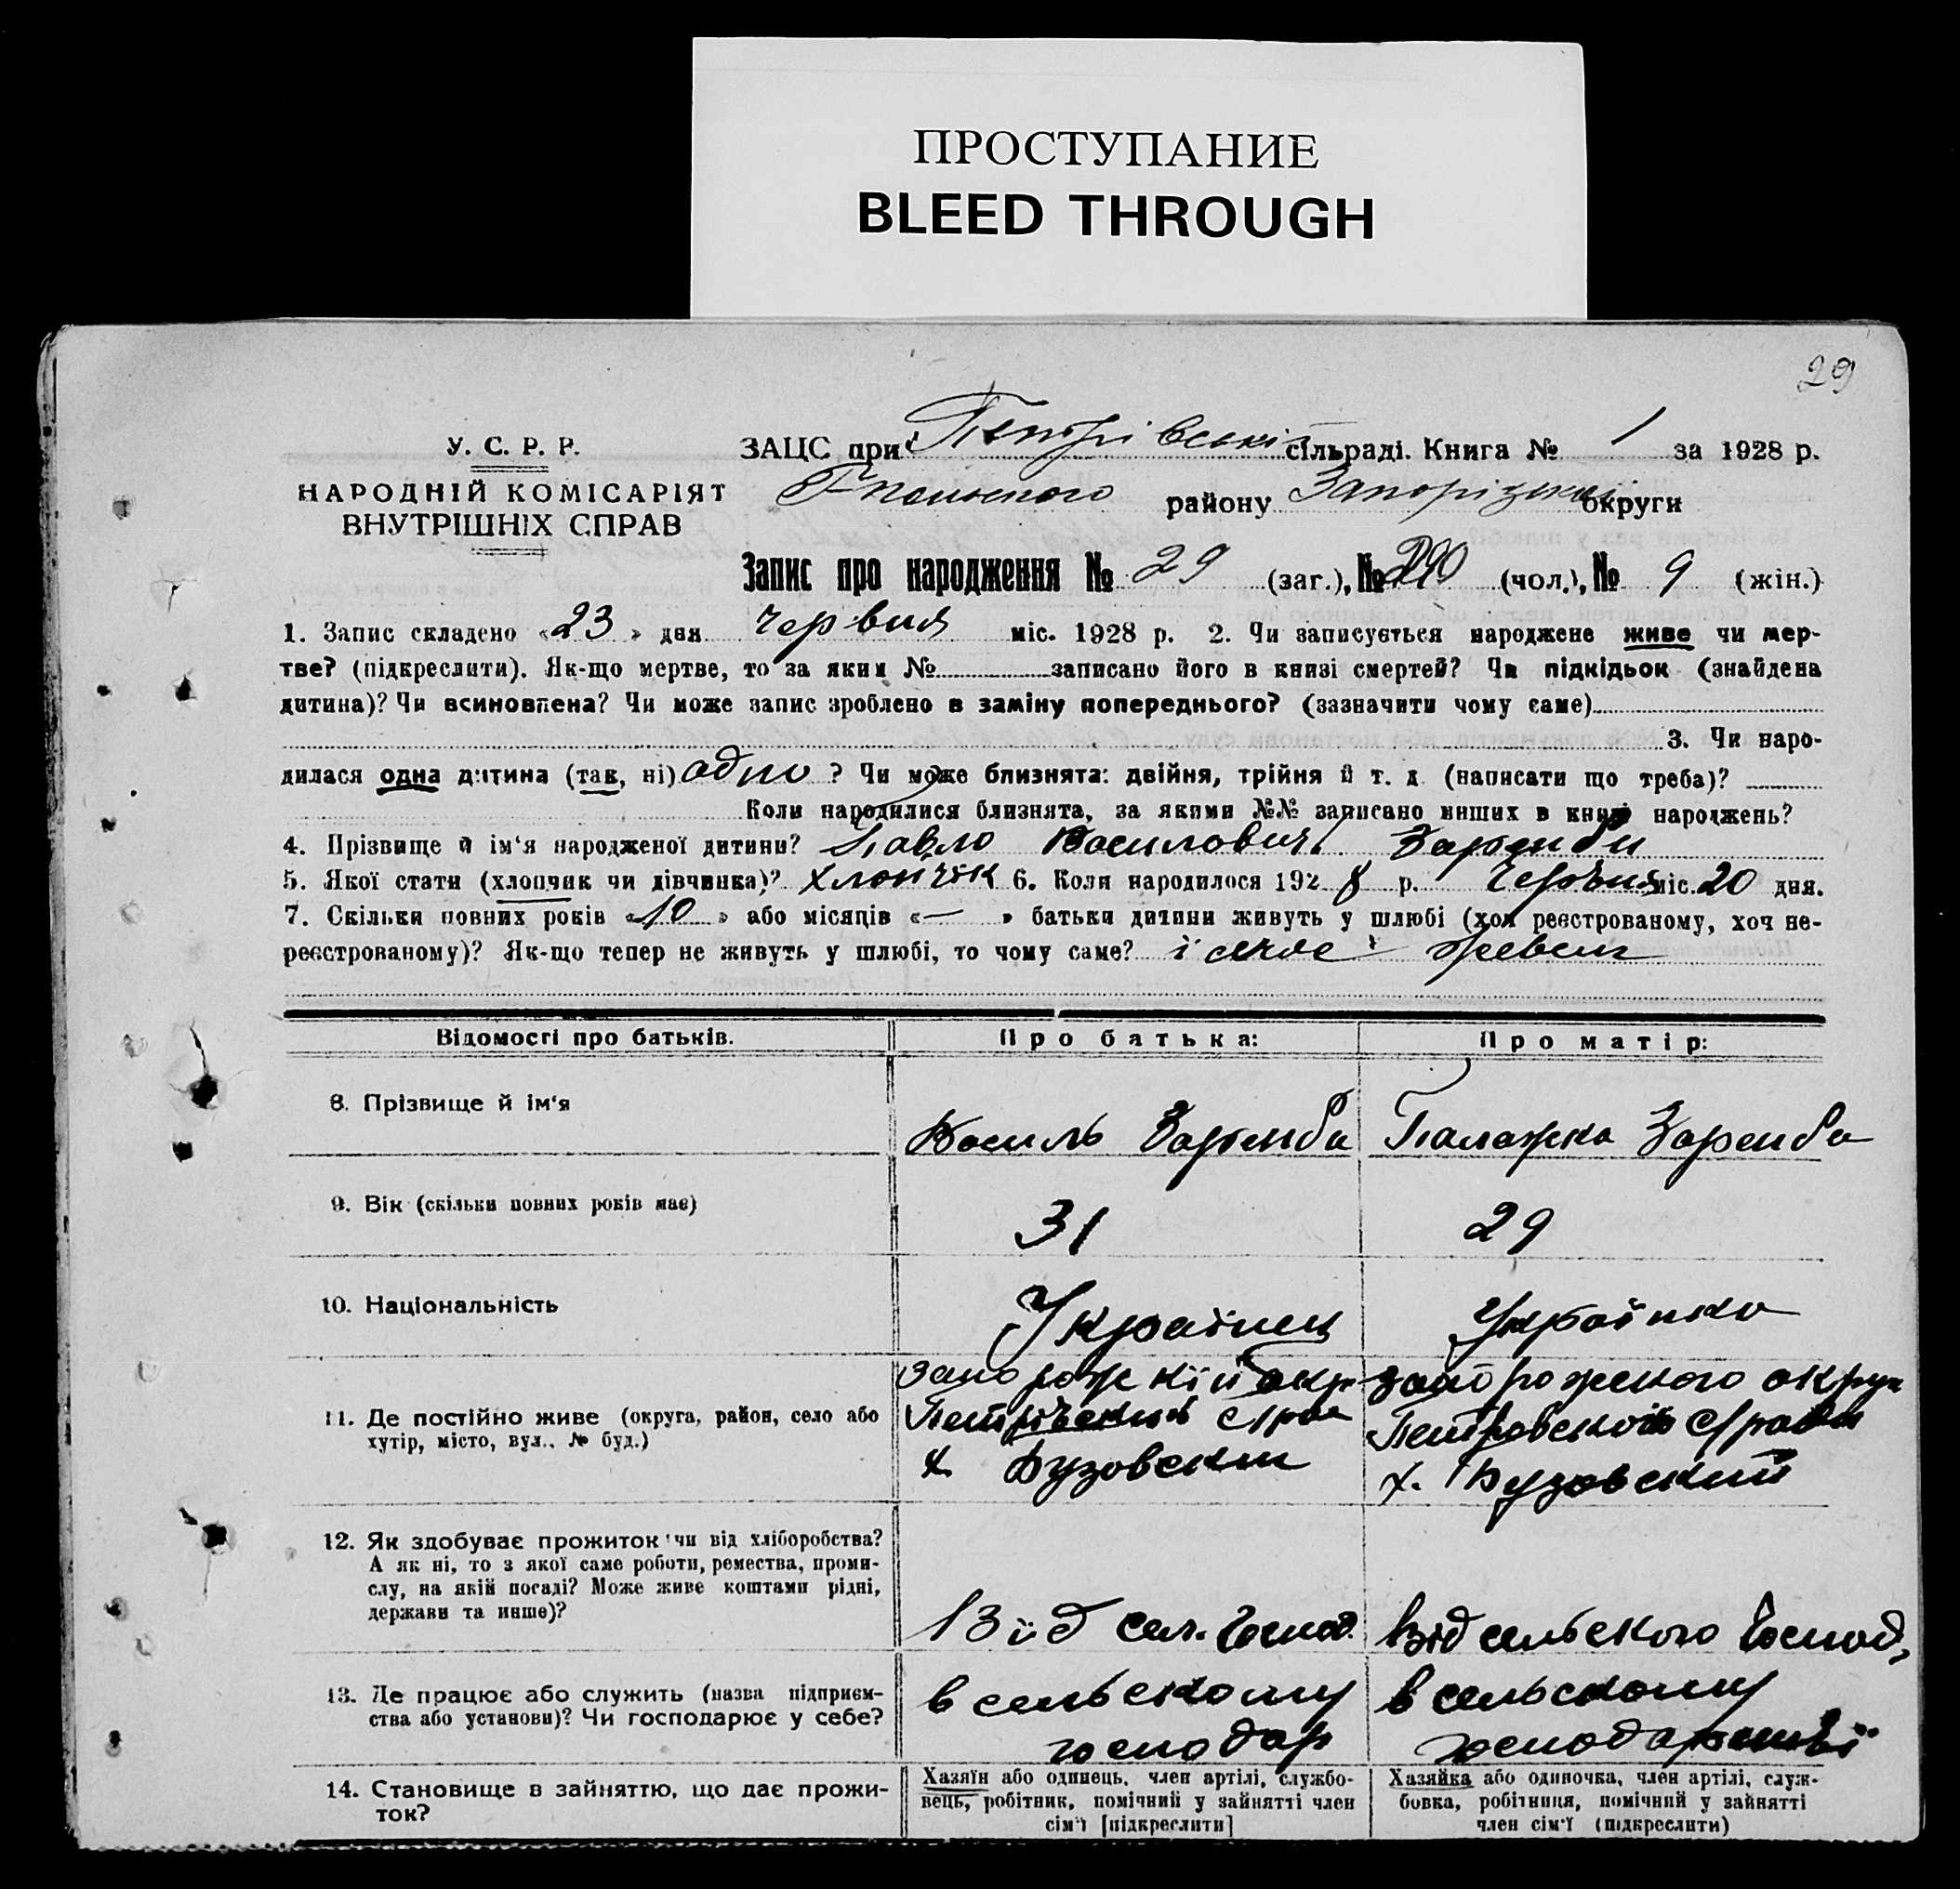 ПРОСТУПАНИЕ
BLEED THROUGH
29
У. С. Р. Р.
НАРОДНІЙ КОМІСАРІЯТ
ВНУТРІШНІХ СПРАВ
ЗАЦС при Петрівській сільраді. Книга № 1 за 1928 р.
району Запорізької округи
Запис про народження № 29 (заг.), № 20 (чол.), № 9 (жін.)
1. Запис складено «23» дня червня міс. 1928 р. 2. Чи записується народжене живе чи мер-
тве? (підкреслити). Як-що мертве, то за яким № записано його в книзі смертей? Чи підкідьок (знайдена
дитина)? Чи всиновлена? Чи може запис зроблено в заміну попереднього? (зазначити чому саме)
3. Чи наро-
дилася одна дитина (так, ні) одно ? Чи може близнята: двійня, трійня й т. д. (написати що треба)?
Коли народилися близнята, за якими №№ записано инших в книзі народжень?
4. Прізвище й ім'я народженої дитини? Павло Василович Заремби
5. Якої стати (хлопчик чи дівчинка)? хлопчік 6. Коли народилося 1928 р. червня міс. 20 дня.
7. Скільки повних років «10» або місяців «—» батьки дитини живуть у шлюбі (хоч реєстрованому, хоч не-
реєстрованому)? Як-що тепер не живуть у шлюбі, то чому саме?
Відомості про батьків. Про батька: Про матір:
8. Прізвище й ім'я
Василь Заремба Палажка Заремба
9. Вік (скільки повних років має)
31 29
10. Національність
Українец Українка
11. Де постійно живе (округа, район, село або
хутір, місто, вул., № буд.)
Запорожкій окр Запорожского округ
Петрівский Петровской
х. Бузовский х. Бузовский
12. Як здобуває прожиток (чи від хліборобства?
А як ні, то з якої саме роботи, ремества, проми-
слу, на якій посаді? Може живе коштами рідні,
держави та инше)?
Від сел. господ. Від сельского господ.
13. Де працює або служить (назва підприєм-
ства або установи)? Чи господарює у себе?
в сельскому в сельскому
господар господарстві
14. Становище в зайняттю, що дає прожи-
ток?
Хазяїн або одинець, член артілі, службо-
вець, робітник, помічний у зайнятті член
сім'ї [підкреслити]
Хазяйка або одиночка, член артілі, служ-
бовка, робітниця, помічний у зайнятті
член сім'ї (підкреслити)